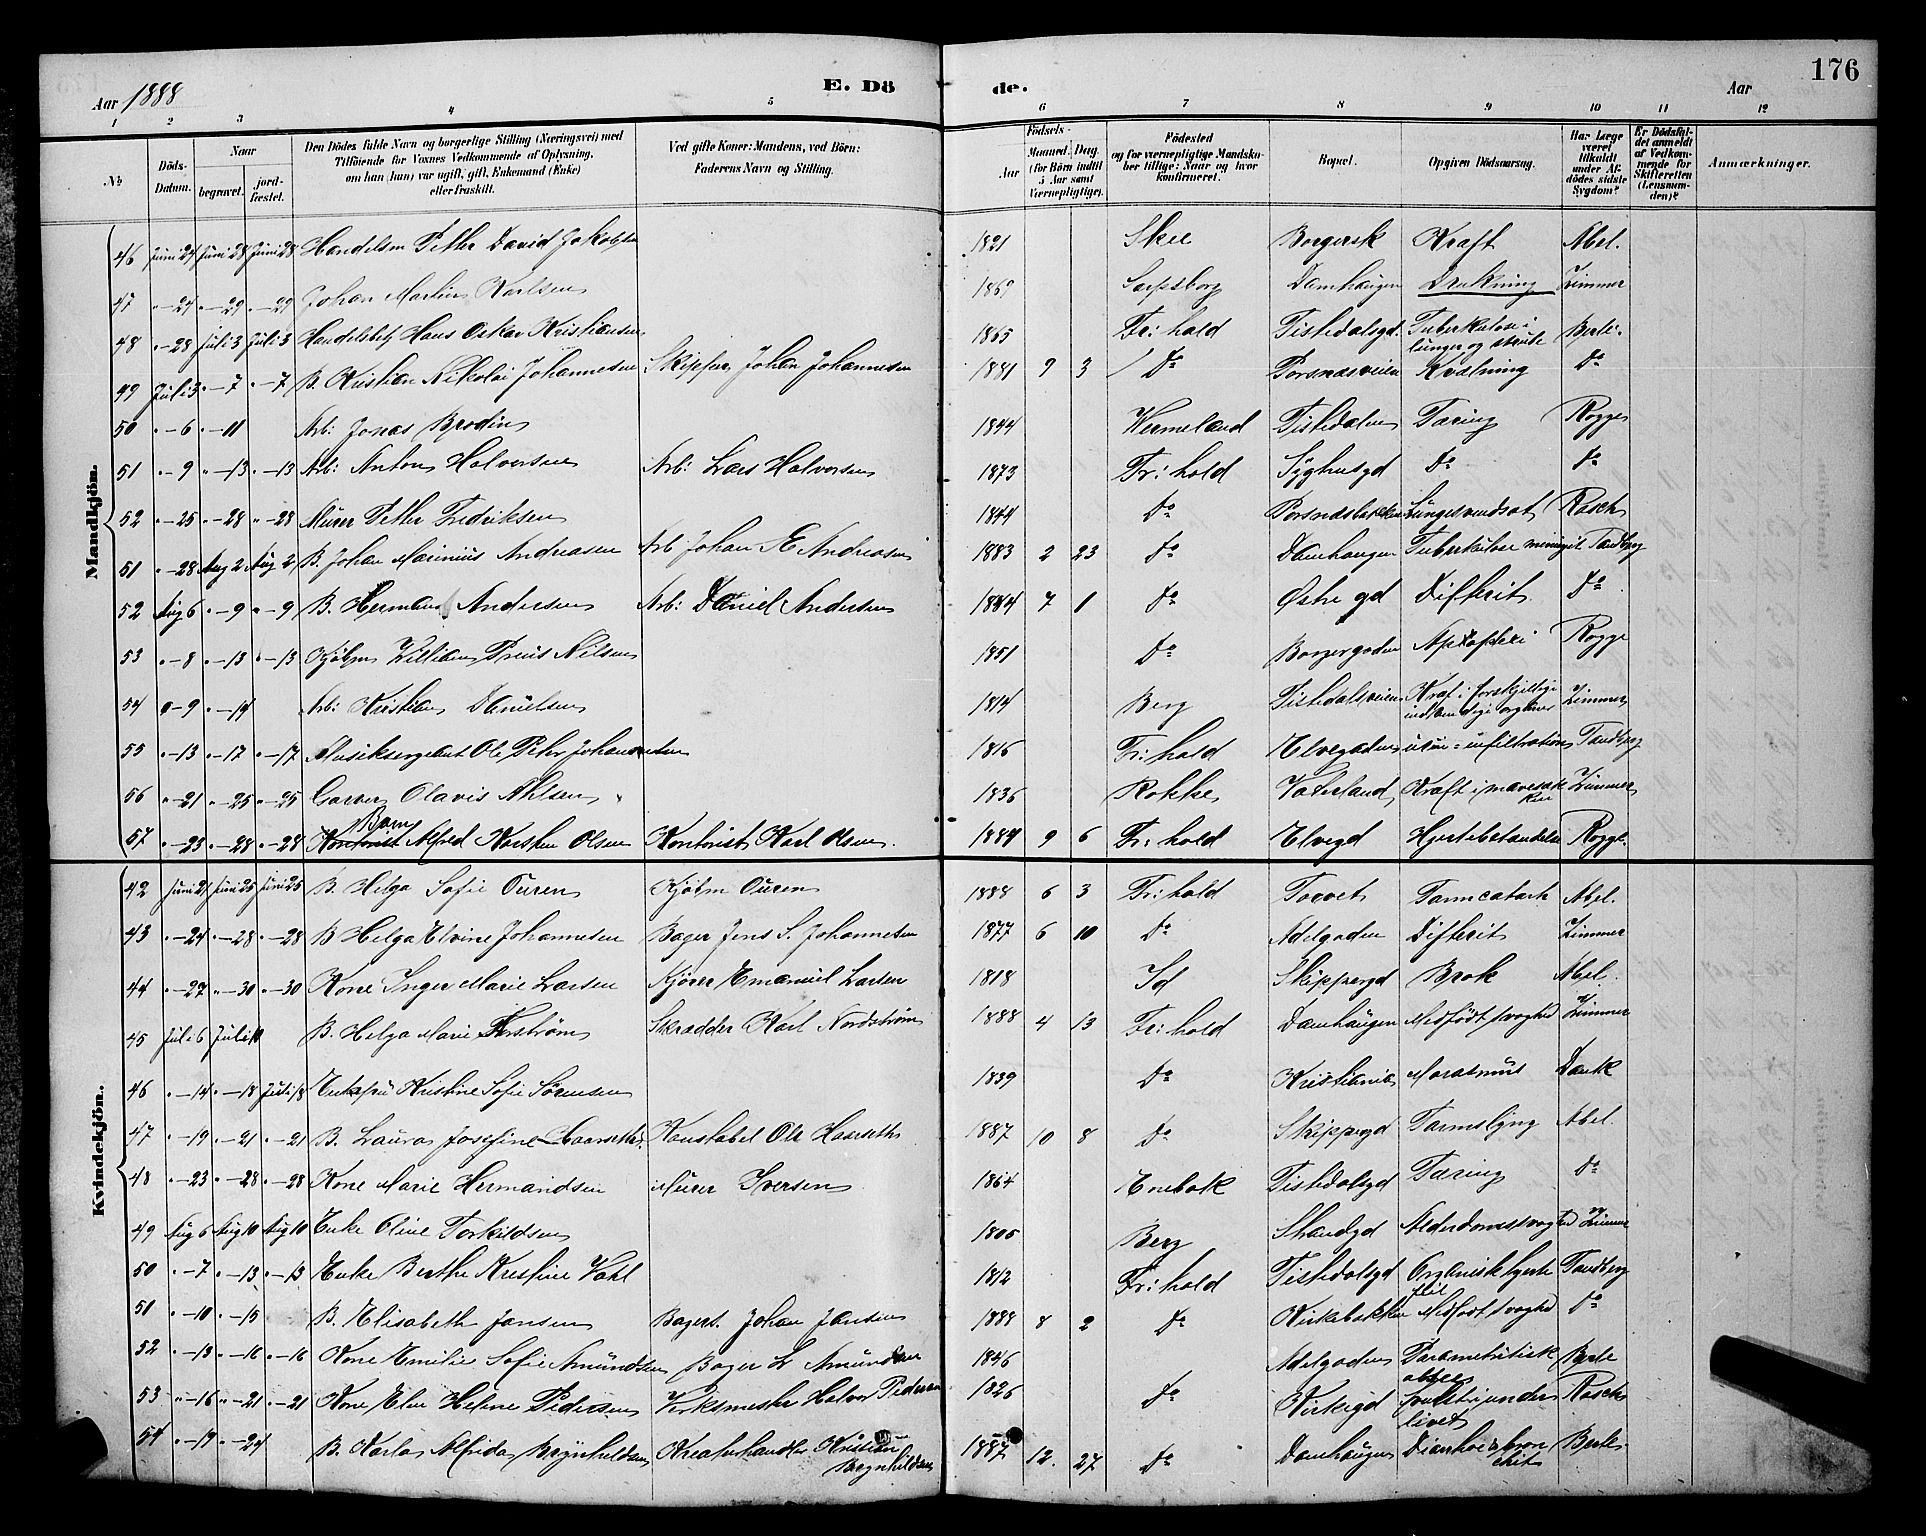 Aar 1888
E. Dö
de.
Aar
176
1 2 3 4 5 6 7 8 9 10 11 12
No
Döds-Datum.
Naar
begravet.
jord-fæstet.
Den Dödes fulde Navn og borgerlige Stilling (Næringsvei) med
Tilföiende for Voxnes Vedkommende af Oplysning,
om han (hun) var ugift, gift, Enkemand (Enke)
eller fraskilt.
Ved gifte Koner: Mandens, ved Börn:
Faderens Navn og Stilling.
Födsels-
Aar
Maaned. Dag.
(for Börn indtil 5 Aar samt Værnepligtige).
Födested
og for værnepligtige Mandsko-
ber tillige: Naar og hvor
konfirmeret.
Bopæl.
Opgiven Dödsaarsag.
Har Læge været tilkaldt under Af-dödes sidste Sygdom?
Er Dödsfal-det anmeldt af Vedkom-mende for Skifteretten (Lensman-den)?
Anmærkninger.
Mandkjön.
46 Juni 24 Juni 28 Juni 28 Handelsm Petter David Jakobsen 1821 Skee Borgersk Kraft Abel.
47 " - 24 " - 29 " - 29 Johan Martin Karlsen 1869 Sarpsborg Damhaugen Drukning Zimmer
48 " - 28 Juli 3 Juli 3 Handelsbetj Hans Oskar Kristiansen 1865 Fr:hald Tistedalsgd. Tuberkulose i lunger og strube Berle.
49 Juli 3 " - 7 " - 7 B. Kristian Nikolai Johannesen Skipper Johan Johannesen 1881 9 3 Do Porsnæsveien Kvælning Do
50 " - 6 " - 11 Arb: Jonas Brodin 1844 Wermeland Tistedalen Tæring Rogge
51 " - 9 " - 13 " - 13 Arb: Anton Halvorsen Arb: Lars Halvorsen 1873 Fr:hald Syghusgd Do Do
52 " - 25 " - 28 " - 28 Murer Petter Fredriksen 1844 Do Porsnæsbakken Lungesvindsot Rosch
51 " - 28 Aug 2 Aug 2 B. Johan Marinius Andreasen Arb Johan E Andreasen 1883 2 23 Do Damhaugen Tuberkulose meningit Tandberg
52 Aug 6 " - 9 " - 9 B. Herman Andersen Arb: Daniel Andersen 1884 7 1 Do Østre gd Difterit Do
53 " - 8 " - 13 " - 13 Kjøbm William Preus Nilsen 1851 Do Borgergaden Rogge
54 " - 9 " - 14 Arb: Kristian Danielsen 1814 Berg Tistedalsveien Kræf i forskjellige indvendige organer Zimmer
55 " - 13 " - 17 " - 17 Musiksergeant Ole Peter Johannesen 1816 Fr:hald Elvegaden urin-infiltration Tandberg
56 " - 21 " - 25 " - 25 Garver Olavis Ahlsen 1836 Rokke Vaterland Kræft i mavesækken Zimmer
57 " - 23 " - 28 " - 28 Barn Alfred Karsten Olsen Kontorist Karl Olsen. 1884 9 6 Fr:hald Elvegd Hjertebetændelse Rogge.
Kvindekjön.
42 Juni 21 Juni 25 Juni 25 B. Helga Sofie Ouren Kjøbm Ouren 1888 6 3 Fr:hald Torvet Tarmcatarh Abel.
43 " - 24 " - 28 " - 28 B Helga Elvine Johannesen Bager Jens S. Johannesen 1877 6 10 Do Adelgaden Difterit Zimmer
44 " - 27 " - 30 " - 30 Kone Inger Marie Larsen Kjører Emanuel Larsen 1818 Id Skippergd Brok Abel.
45 Juli 6 Juli 10 B. Helga Marie Skrædder Karl Nordstrøm 1888 4 13 Fr:hald Damhaugen Medfödt svaghed Zimmer
46 " - 14 " - 18 Juli 18 Enkefru Kristine Sofie Sørensen 1839 Do Kristiania Marasmus Dank
47 " - 19 " - 21 " - 21 B. Laura Josefine Haarseth. Konstabel Ole Haarseth 1887 10 8 Do Skippergd Tarmslyng Abel.
48 " - 23 " - 28 " - 28 Kone Marie Hermandsen Murer Iversen 1864 Enebak Tistedalsgd Tæring Do
49 Aug 6 Aug 10 Aug 10 Enke Oline Torkildsen 1806 Berg Strandgd Alderdomssvaghed Zimmer
50 " - 7 " - 13 " - 13 Enke Berthe Kristine Vahl 1812 Fr:hald Tistedalsgd Organisk hjertefeil Tandberg
51 " - 10 " - 15 B. Elisabeth Jansen Bagers. Johan Jansen 1888 8 2 Do Kirkebakken Medfödt svaghed Do
52 " - 13 " - 16 " - 16 Kone Emilie Sofie Amundsen Bager L Amundsen 1846 Adelgaden Parametritisk absces Berle
53 " - 16 " - 21 " - 21 Kone Else Helene Pedersen Verksmester Halvor Pedersen 1826 Do Kirkegd Svulst i underlivet Rosch
54 " - 19 " - 24 B. Karla Alfrida Brynhildsen Kreaturhandler Kristian Brynhildsen 1887 12. 27 Do Damhaugen Diarrhoe & bronchit Berle.